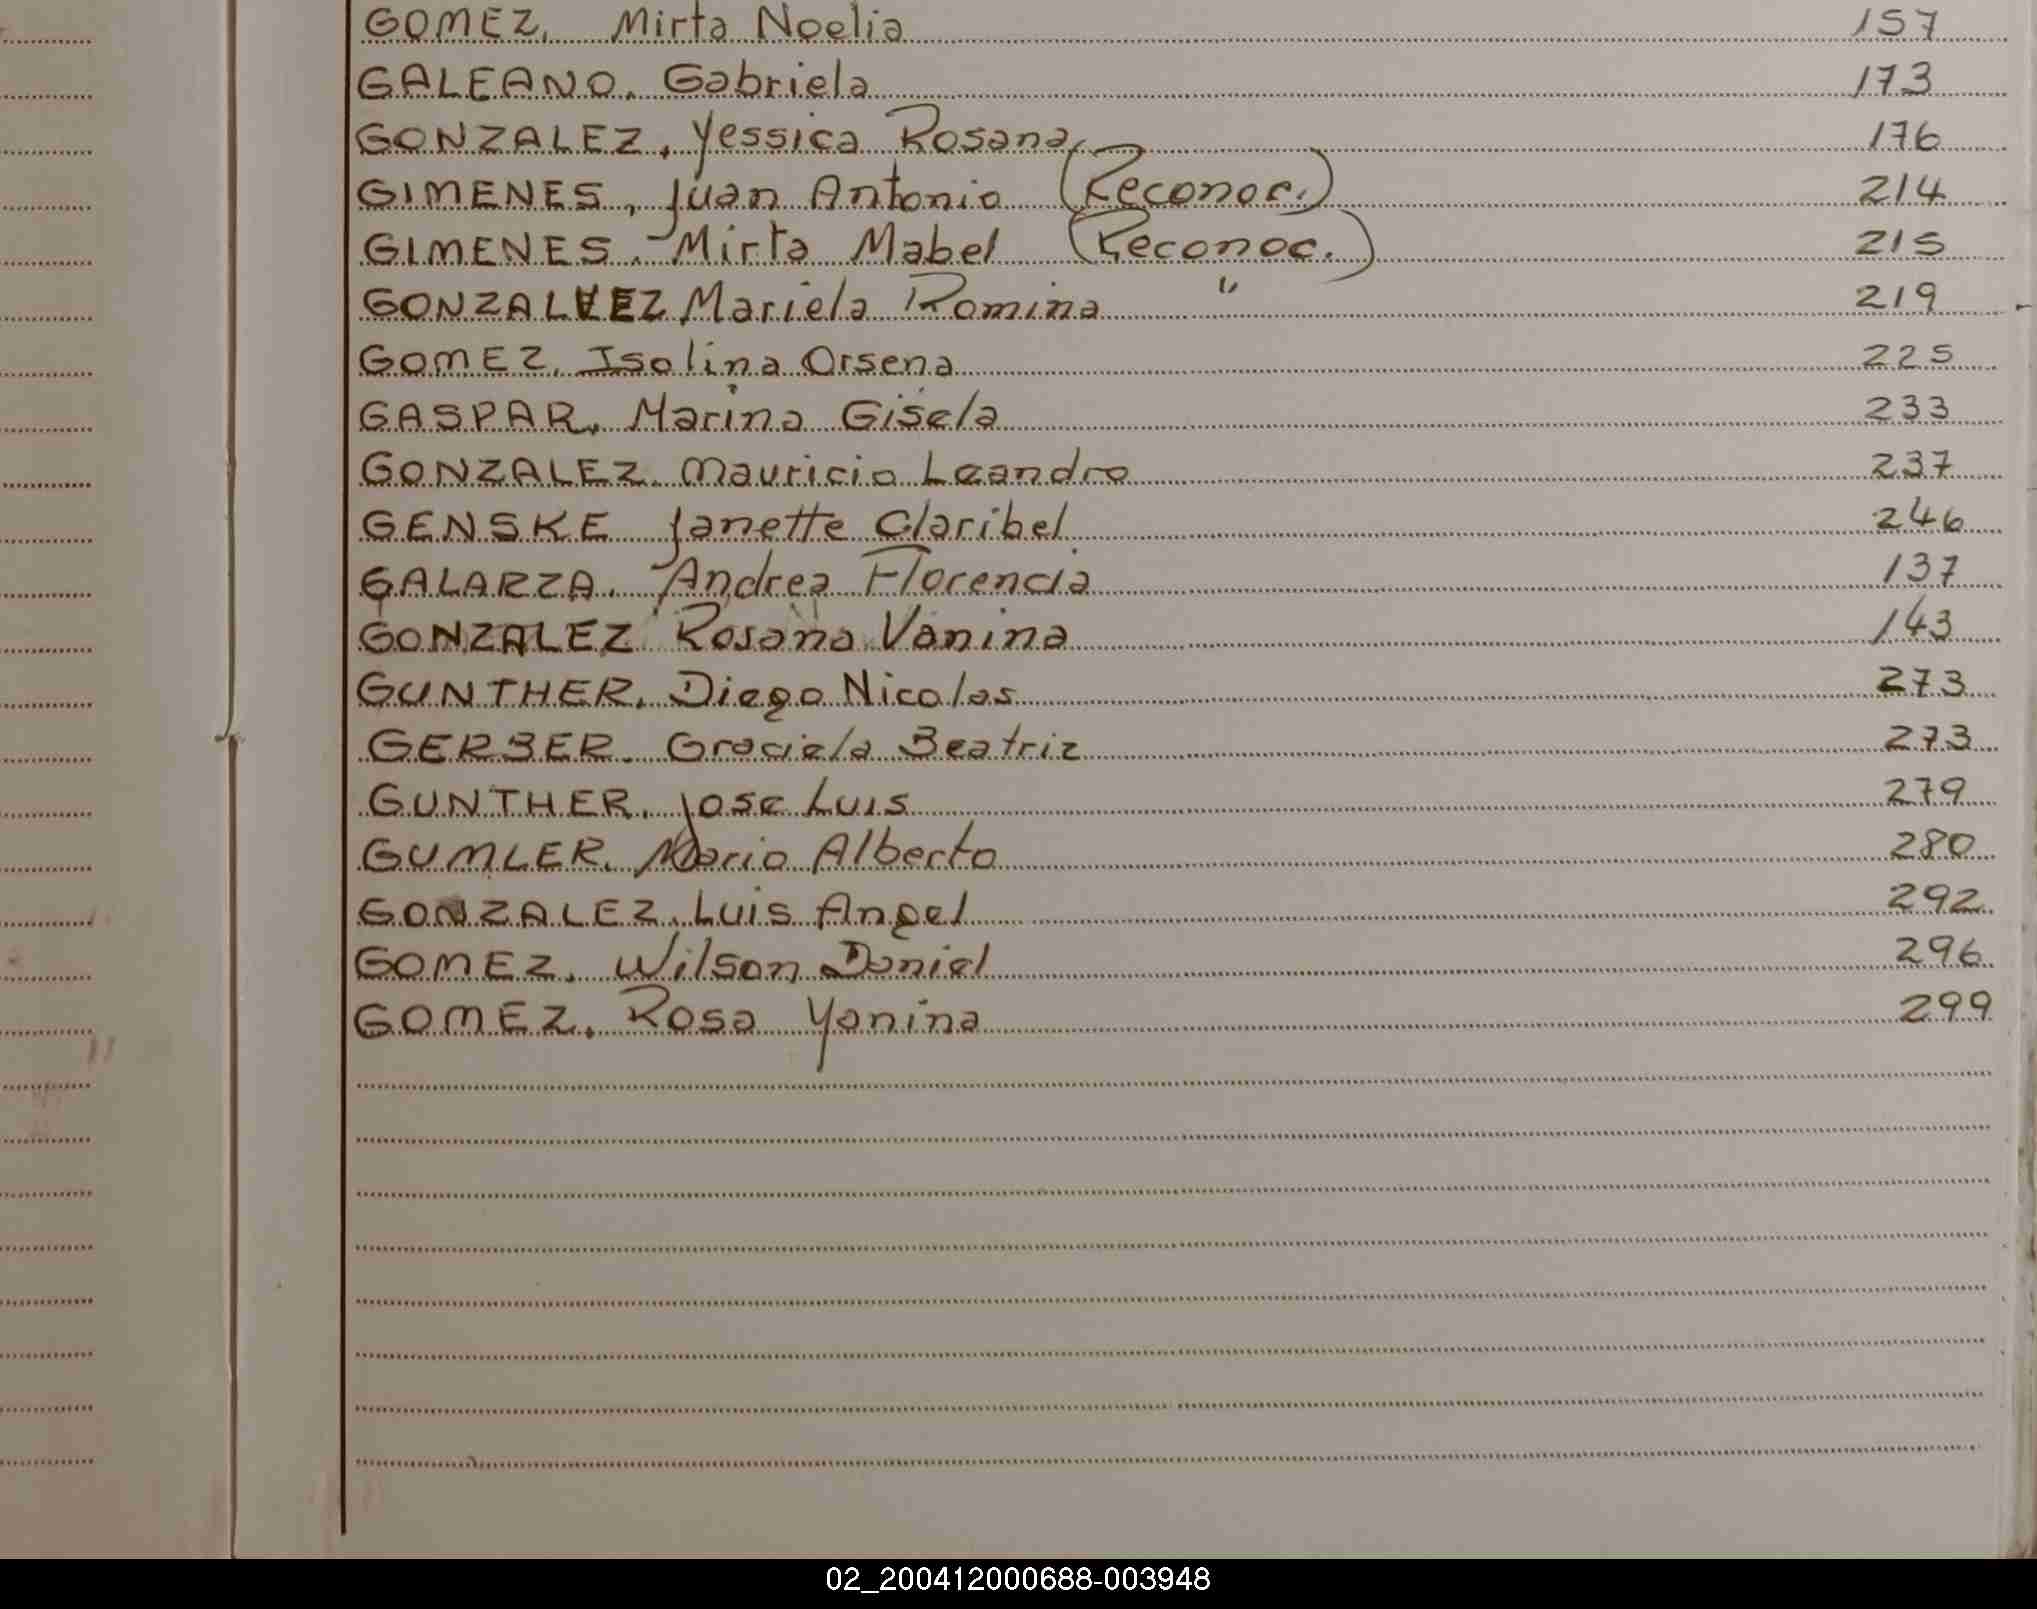 GOMEZ, Mirta Noelia 157
GALEANO, Gabriela 173
GONZALEZ, Yessica Rosana 176
GIMENES, Juan Antonio (Reconoc.) 214
GIMENES, Mirta Mabel (Reconoc.) 215
Mariela Romina " 219
GOMEZ, Isolina Orsena 225
GASPAR, Marina Gisela 233
GONZALEZ, Mauricio Leandro 237
GENSKE Janette Claribel 246
GALARZA, Andrea Florencia 137
GONZALEZ Rosana Vanina 143
GUNTHER, Diego Nicolas 273
GERBER, Graciela Beatriz 273
GUNTHER, Jose Luis 279
GUMLER, Mario Alberto 280
GONZALEZ, Luis Angel 292
GOMEZ, Wilson Daniel 296
GOMEZ, Rosa Yanina 299
02_200412000688-003948